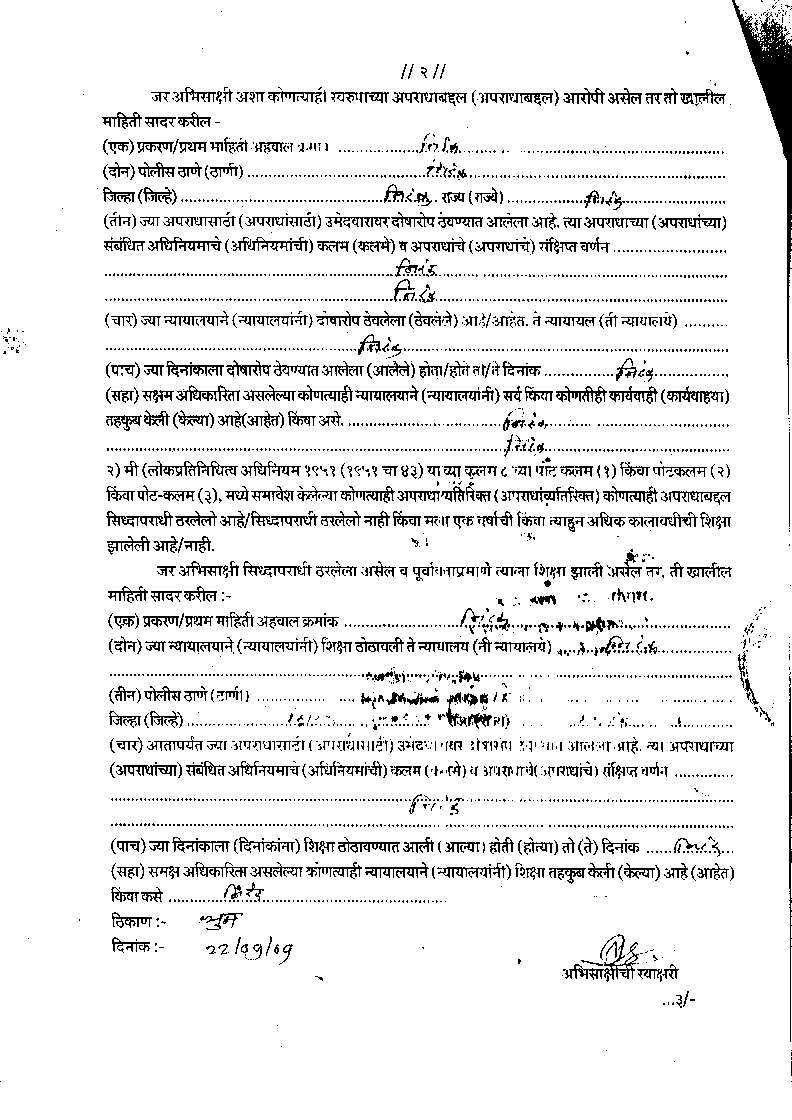 // २ //
जर अभिसाक्षी अशा कोणत्याही स्वरुपाच्या अपराधाबद्दल (अपराधाबद्दल) आरोपी असेल तर तो खालील
माहिती सादर करील -
(एक) प्रकरण/प्रथम माहिती अहवाल क्रमां ..................निरंक..................
(दोन) पोलीस ठाणे (ठाणी) ..................निरंक..................
जिल्हा (जिल्हे) ..................निरंक. राज्य (राज्ये) ..................निरंक..................
(तीन) ज्या अपराधासाठी (अपराधांसाठी) उमेदवारावर दोषारोप ठेवण्यात आलेला आहे. त्या अपराधाच्या (अपराधांच्या)
संबंधित अधिनियमाचे (अधिनियमांची) कलम (कलमे) व अपराधांचे (अपराधांचे) संक्षिप्त वर्णन ..................
..................निरंक..................
..................निरंक..................
(चार) ज्या न्यायालयाने (न्यायालयांनी) दोषारोप ठेवलेला (ठेवलेले) आहे/आहेत. ते न्यायालय (ती न्यायालये) ..........
..................निरंक..................
(पाच) ज्या दिनांकाला दोषारोप ठेवण्यात आलेला (आलेले) होता/होते तो/ते दिनांक ..................निरंक..................
(सहा) सक्षम अधिकारिता असलेल्या कोणत्याही न्यायालयाने (न्यायालयांनी) सर्व किंवा कोणतीही कार्यवाही (कार्यवाह्या)
तहकुब केली (केल्या) आहे(आहेत) किंवा असे. ..................निरंक..................
..................निरंक..................
२) मी (लोकप्रतिनिधित्व अधिनियम १९५१ (१९५१ चा ४३) या च्या कलम ८ च्या पोट कलम (१) किंवा पोटकलम (२)
किंवा पोट-कलम (३), मध्ये समावेश केलेल्या कोणत्याही अपराधा व्यतिरिक्त (अपराधांव्यतिरिक्त) कोणत्याही अपराधाबद्दल
सिध्दापराधी ठरलेलो आहे/सिध्दापराधी ठरलेलो नाही किंवा मला एक वर्षाची किंवा त्याहुन अधिक कालावधीची शिक्षा
झालेली आहे/नाही.
जर अभिसाक्षी सिध्दापराधी ठरलेला असेल व पूर्वोक्ताप्रमाणे त्याला शिक्षा झाली असेल तर, तो खालील
माहिती सादर करील :-
(एक) प्रकरण/प्रथम माहिती अहवाल क्रमांक ..................निरंक..................
(दोन) ज्या न्यायालयाने (न्यायालयांनी) शिक्षा ठोठावली ते न्यायालय (ती न्यायालये) ..........निरंक
(तीन) पोलीस ठाणे (ठाणी) ..................
जिल्हा (जिल्हे) ..................
(चार) आतापर्यंत ज्या अपराधासाठी (अपराधांसाठी) उमेदवारावर दोषारोप ठेवण्यात आलेला आहे. त्या अपराधाच्या
(अपराधांच्या) संबंधित अधिनियमाचे (अधिनियमांची) कलम (कलमे) व अपराधाचे(अपराधांचे) संक्षिप्त वर्णन ..............
..................निरंक..................
(पाच) ज्या दिनांकाला (दिनांकांना) शिक्षा ठोठावण्यात आली (आल्या) होती (होत्या) तो (ते) दिनांक ......निरंक...
(सहा) समक्ष अधिकारिता असलेल्या कोणत्याही न्यायालयाने (न्यायालयांनी) शिक्षा तहकुब केली (केल्या) आहे (आहेत)
किंवा कसे ............निरंक..................
ठिकाण :- भुम
दिनांक :- 22/09/09
अभिसाक्षीची स्वाक्षरी
...३/-